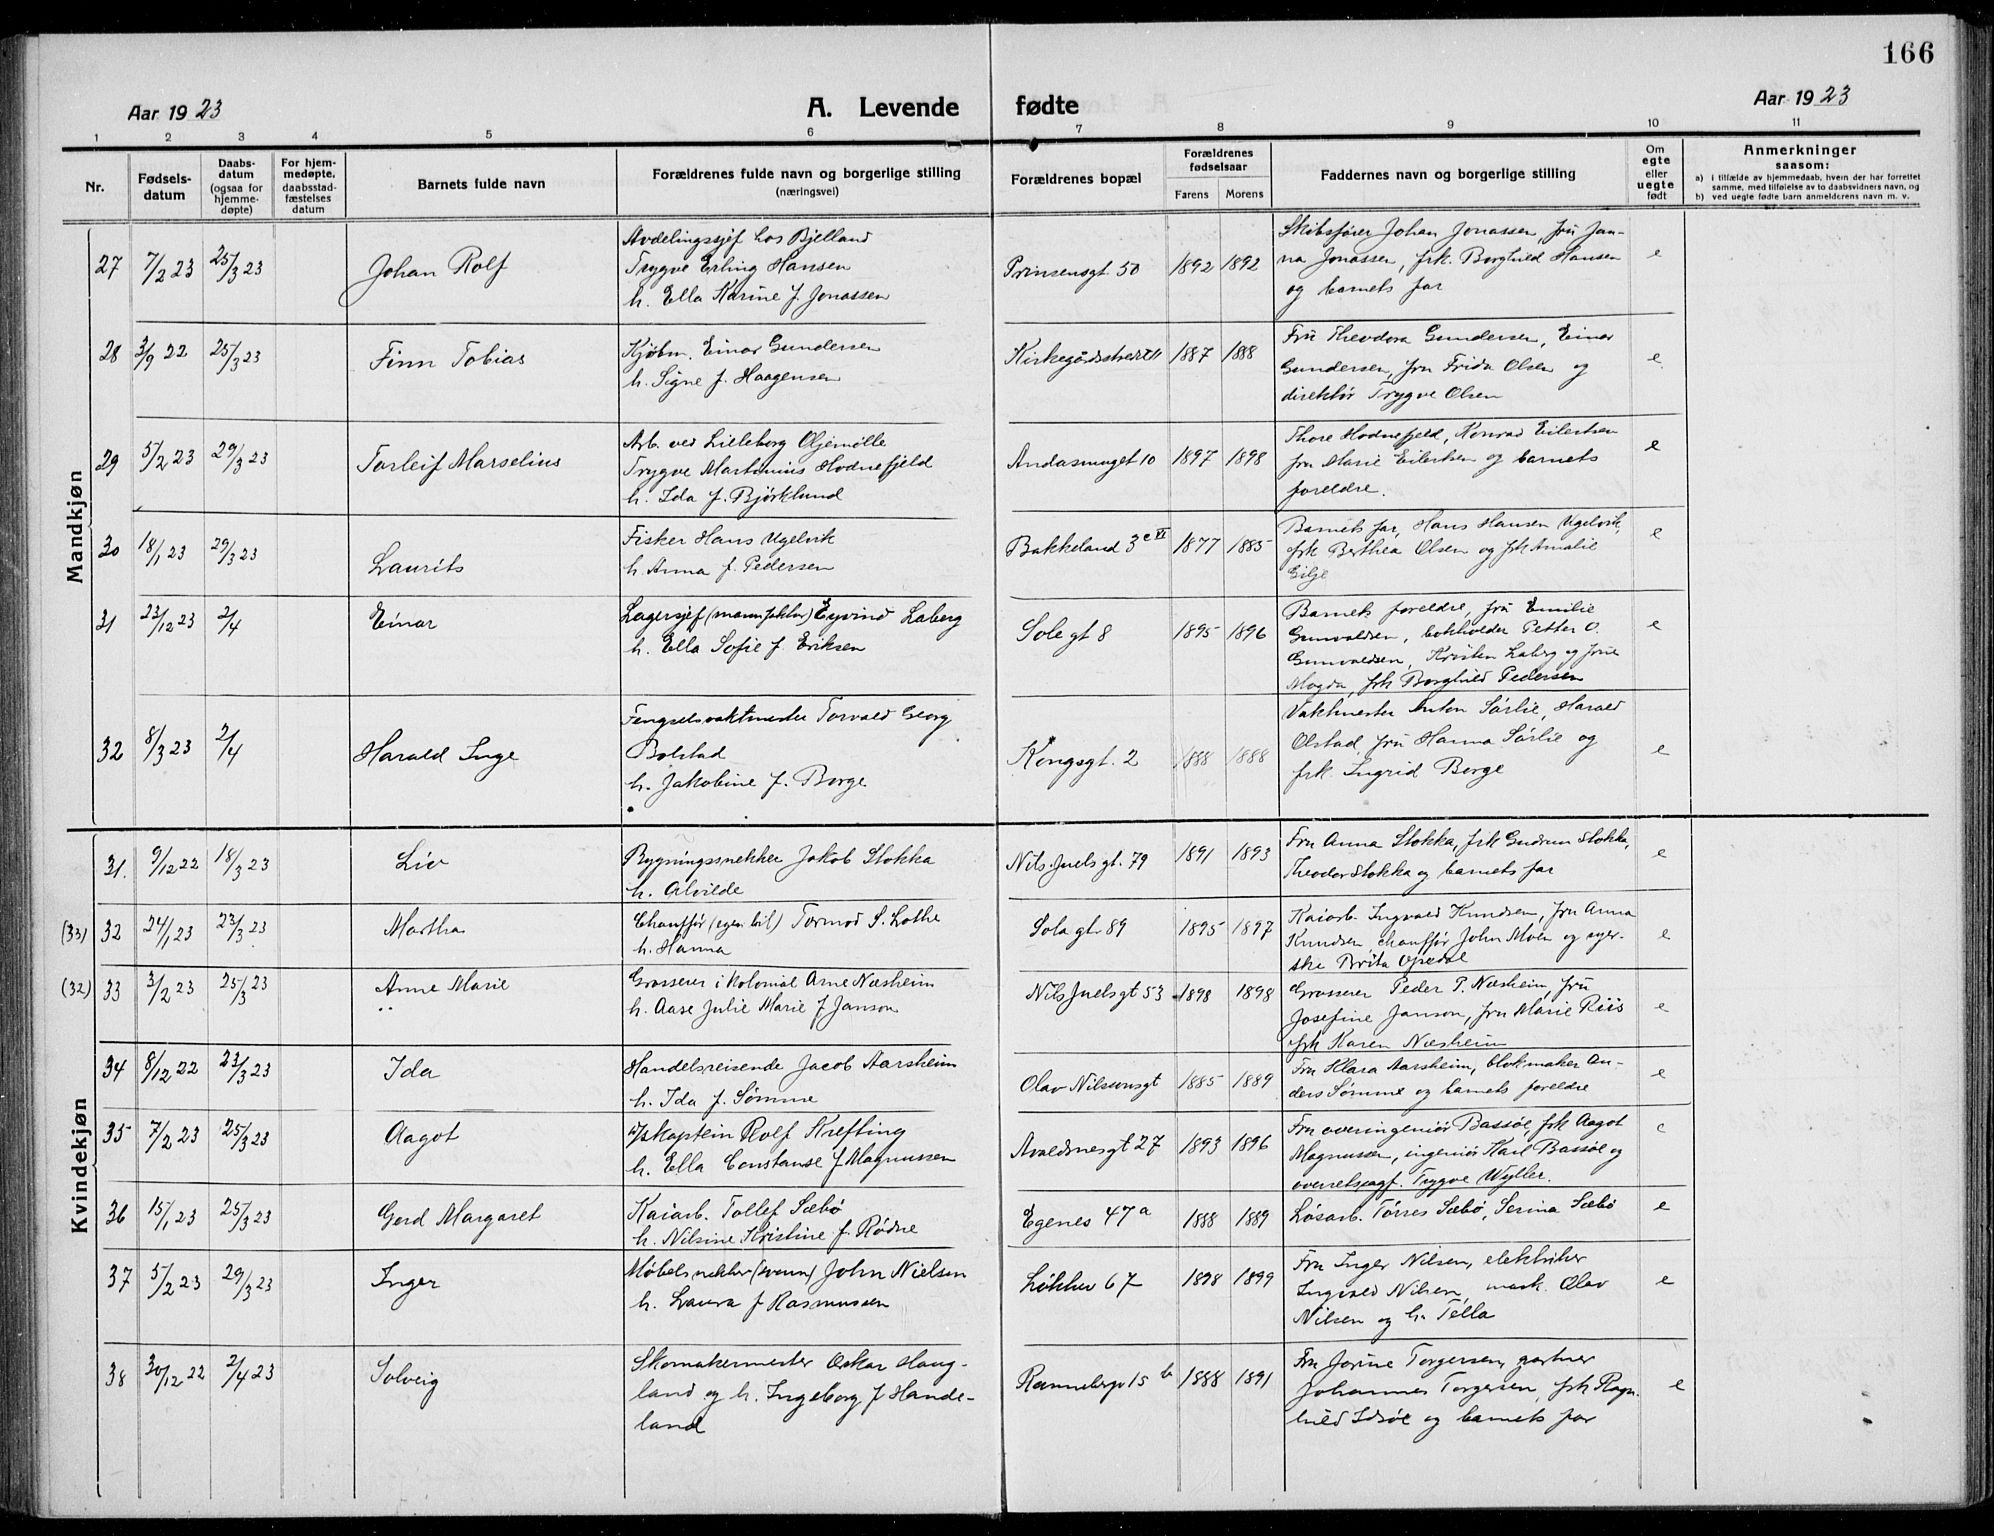 166
Aar 1923
A. Levende fødte
Aar 1923
1 2 3 4 5 6 7 8 9 10 11
Nr.
Fødsels-
datum
Daabs-
datum
(ogsaa for
hjemme-
døpte)
For hjem-
medøpte,
daabsstad-
fæstelses
datum
Barnets fulde navn
Forældrenes fulde navn og borgerlige stilling
(næringsvei)
Forældrenes bopæl
Forældrenes
fødselsaar
Farens Morens
Faddernes navn og borgerlige stilling
Om
egte
eller
uegte
født
Anmerkninger
saasom:
a) i tilfælde av hjemmedaab, hvem der har forrettet
samme, med tilføielse av to daabsvidners navn, og
b) ved uegte fødte barn anmelderens navn m. v.
Mandkjøn
27 7/2 23 25/3 23 Johan Rolf
Avdelingssjef hos Bjelland
Trygve Erling Hansen
h. Ella Karine f. Jonassen
Prinsensgt 50 1892 1892
Skibsfører Johan Jonassen, fru Jan-
na Jonassen, frk. Borghild Hansen
og barnets far
e
28 3/9 22 25/3 23 Finn Tobias
Kjøbm. Einar Gundersen
h. Signe f. Haagensen
Kirkegårdsstredet 11 1887 1888
Fru Theodora Gundersen, Einar
Gundersen, fru Frida Olsen og
direktør Trygve Olsen
e
29 5/2 23 29/3 23 Torleif Marselius
Arb. ved Lilleborg Oljemølle
Trygve Martinius Hodnefjeld
h. Ida f. Bjørklund
Andasmuget 10 1897 1898
Thore Hodnefjeld, Konrad Eilertsen
fru Marie Eilertsen og barnets
foreldre.
e
30 18/1 23 29/3 23 Laurits
Fisker Hans Ugelvik
h. Anna f. Pedersen
Bakkeland 3 1877 1885
Barnets far, Hans Hansen Ugelvik,
frk Berthea Olsen og frk Amalie
Gilje
e
31 23/12 23 2/4 Einar
Lagersjef (manufaktur) Eyvind Laberg
h. Ella Sofie f. Eriksen
Solegt 8 1895 1896
Barnets foreldre, fru Emilie
Gunvaldsen, bokholder Petter O.
Gunvaldsen, Kristen Laberg og frue
Magda, frk Borghild Pedersen
e
32 8/3 23 2/4 Harald Inge
Fengselsvaktmester Torvald Georg
Bolstad
h. Jakobine f. Borge
Kongsgt. 2 1888 1888
Vaktmester Anton Sørlie, Harald
Olstad, fru Hanna Sørlie og
frk. Ingrid Borge
e
Kvindekjøn
31. 9/12 22 18/3 23 Liv
Bygningssnekker Jakob Stokka
h. Alvilde
Nils Juels gt. 79 1891 1893
Fru Anna Stokka, frk Gudrun Stokka,
Theodor Stokka og barnets far
e
(33) 32 24/1 23 23/3 23 Martha
Chauffør (egen bil) Tormod S. Lothe
h. Hanna
Sola gt 89 1895 1897
Kaiarb. Ingvald Knudsen, fru Anna
Knudsen, chauffør John Moen og syer-
ske Brita Opedal
e
(32) 33 3/2 23 25/3 23 Anne Marie
Grosserer i kolonial Arne Næsheim
h. Aase Julie Marie f Janson
Nils Juels gt 53 1898 1898
Grosserer Peder P. Næsheim, fru
Josefine Janson, fru Marie Riis
frk Karen Næsheim
e
34 8/12 22 23/3 23 Ida
Handelsreisende Jacob Aarsheim
h. Ida f. Sømme
Olav Nilsonsgt 1885 1889
Fru Klara Aarsheim, blokmaker An-
ders Sømme og barnets foreldre
e
35 7/2 23 25/3 23 Aagot
D/skaptein Rolf Krefting
h. Ella Constanse f Magnussen
Avaldsnesgt 27 1893 1896
Fru overingeniør Bassøe, frk Aagot
Magnussen, ingeniør Karl Bassøe og
overretssagf. Trygve Wyller.
e
36 15/1 23 25/3 23 Gerd Margaret
Kaiarb. Tollef Sæbø
h. Nilsine Kristine f. Rødne
Egenes 47a 1888 1889
Løsarb. Tørres Sæbø, Serina Sæbø
e
37 5/2 23 29/3 23 Inger
Møbelsnekker (svenn) John Nielsen
h. Laura f Rasmussen
Løkkev 67 1898 1899
Fru Inger Nilsen, elektriker
Ingvald Nilsen, mask. Olav
Nilsen og h. Tella
e
38 30/12 22 2/4 23 Solveig
Skomakermester Oskar Haug-
land og h. Ingeborg f Hande-
land
Rannebergv 15 b 1888 1891
Fru Jorine Torgersen, gartner
Johannes Torgersen, frk Ragn-
hild Idsøe og barnets far
e